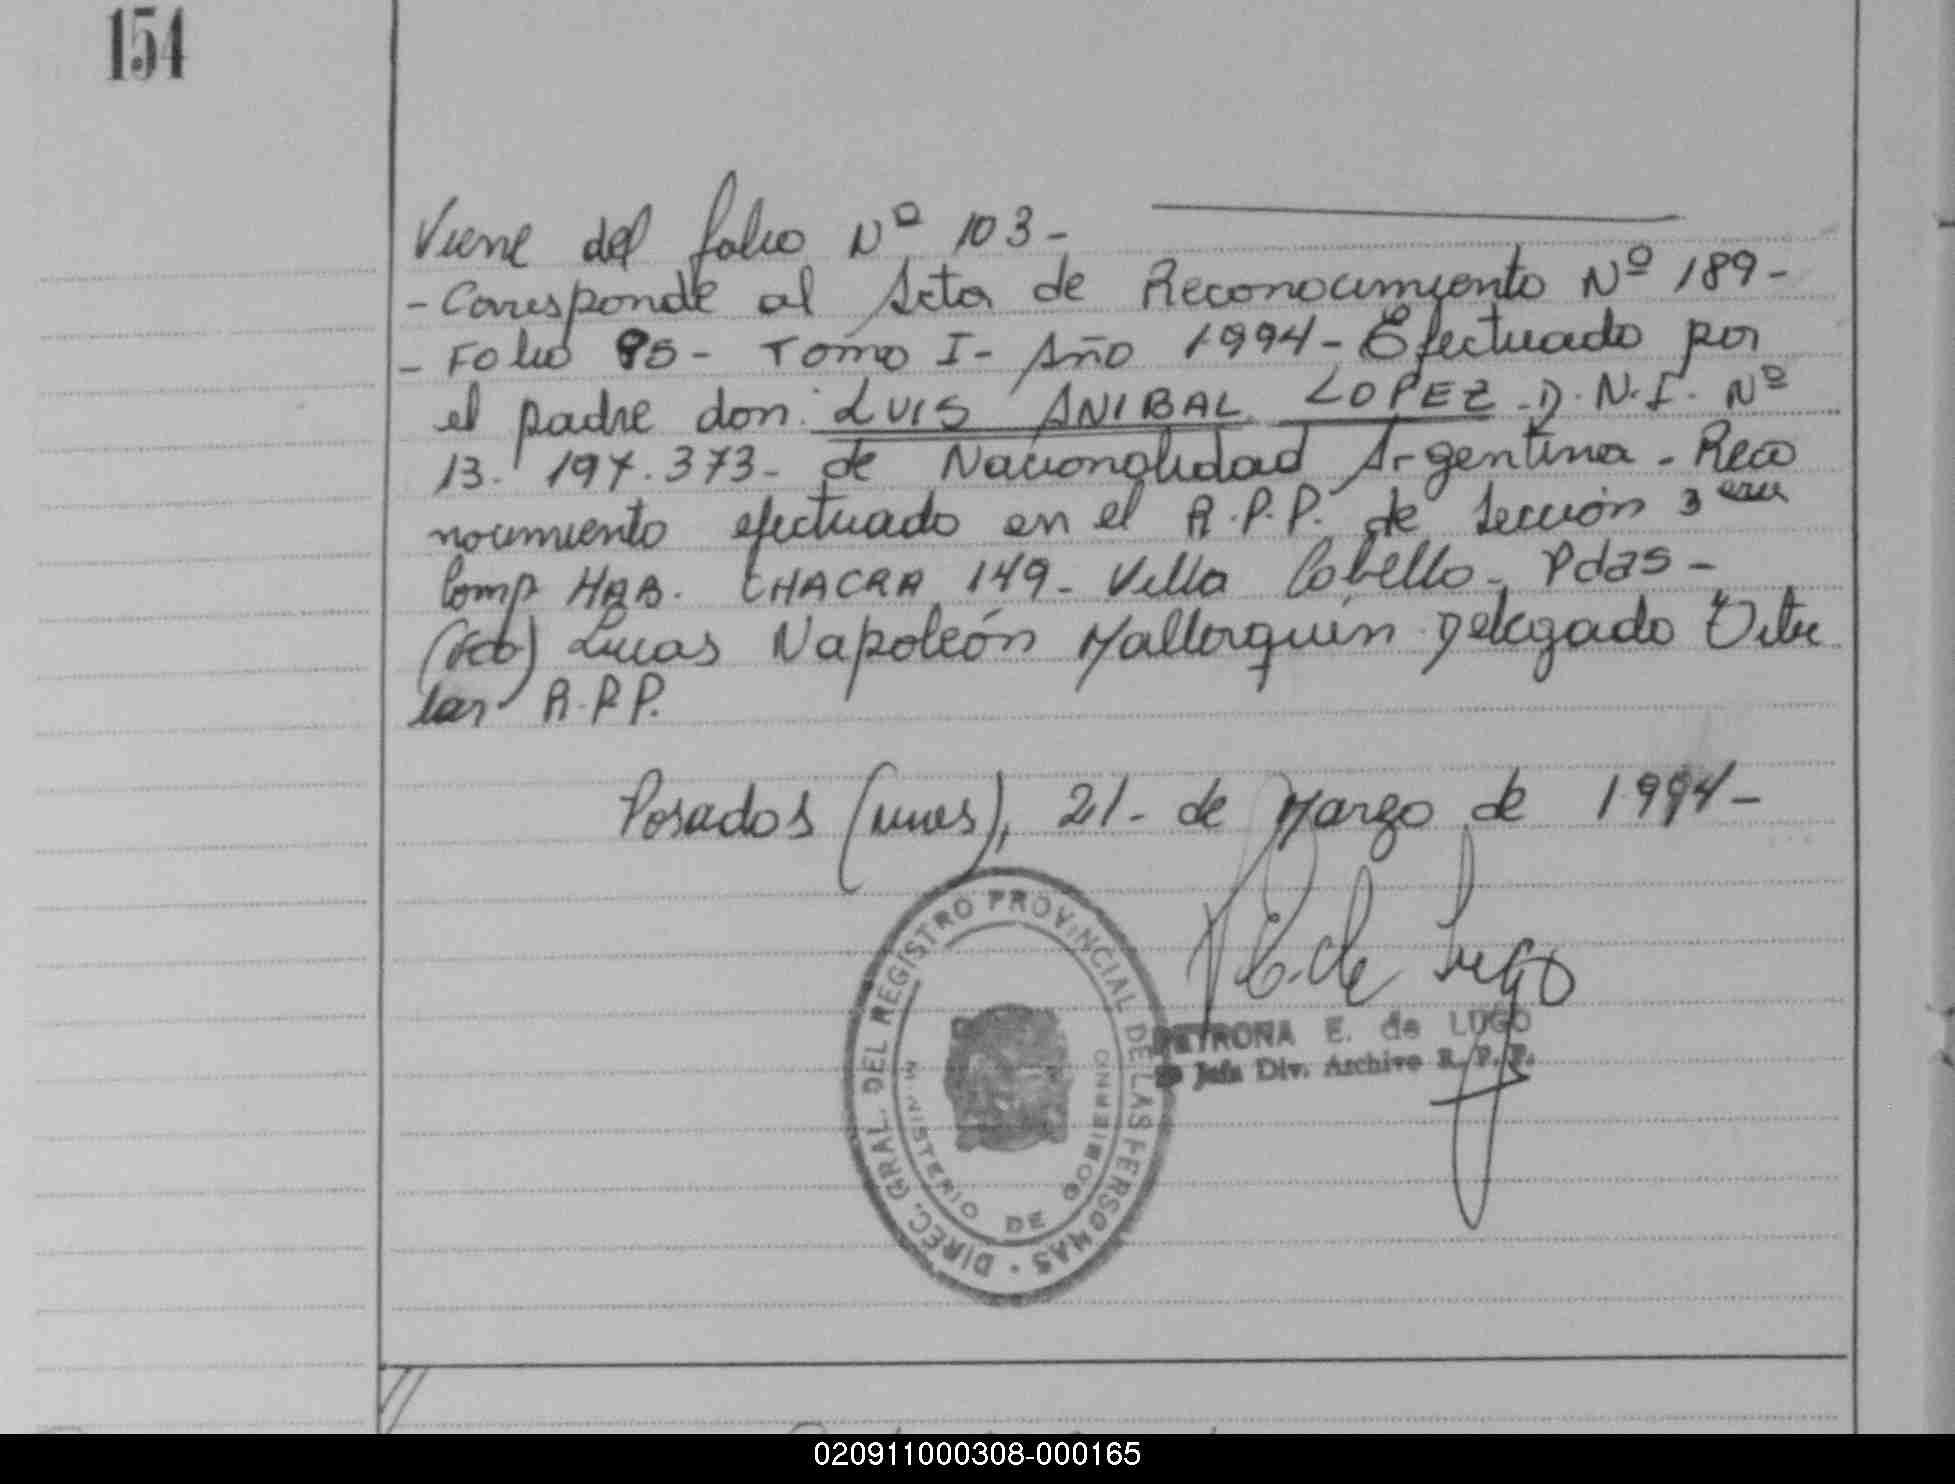 154
Viene del folio Nº 103-
- Corresponde al Acta de Reconocimiento Nº 189-
- Folio 95- Tomo I- Año 1994- Efectuado por
el padre don: LUIS ANIBAL LOPEZ - D.N.I. Nº
13.197.373- de Nacionalidad Argentina - Reco
nocimiento efectuado en el R.P.P. de Sección 3era
Comp HAB. CHACRA 149- Villa Cabello- Pdas-
(Fdo) Lucas Napoleón Mallorquin Delegado Titu
lar R.P.P.
Posadas (mnes), 21- de Marzo de 1994-
P.E. de Lugo
PETRONA E. de LUGO
Jefa Div. Archivo R.P.P.
DIREC. GRAL. DEL REGISTRO PROVINCIAL DE LAS PERSONAS
MINISTERIO DE GOBIERNO
020911000308-000165